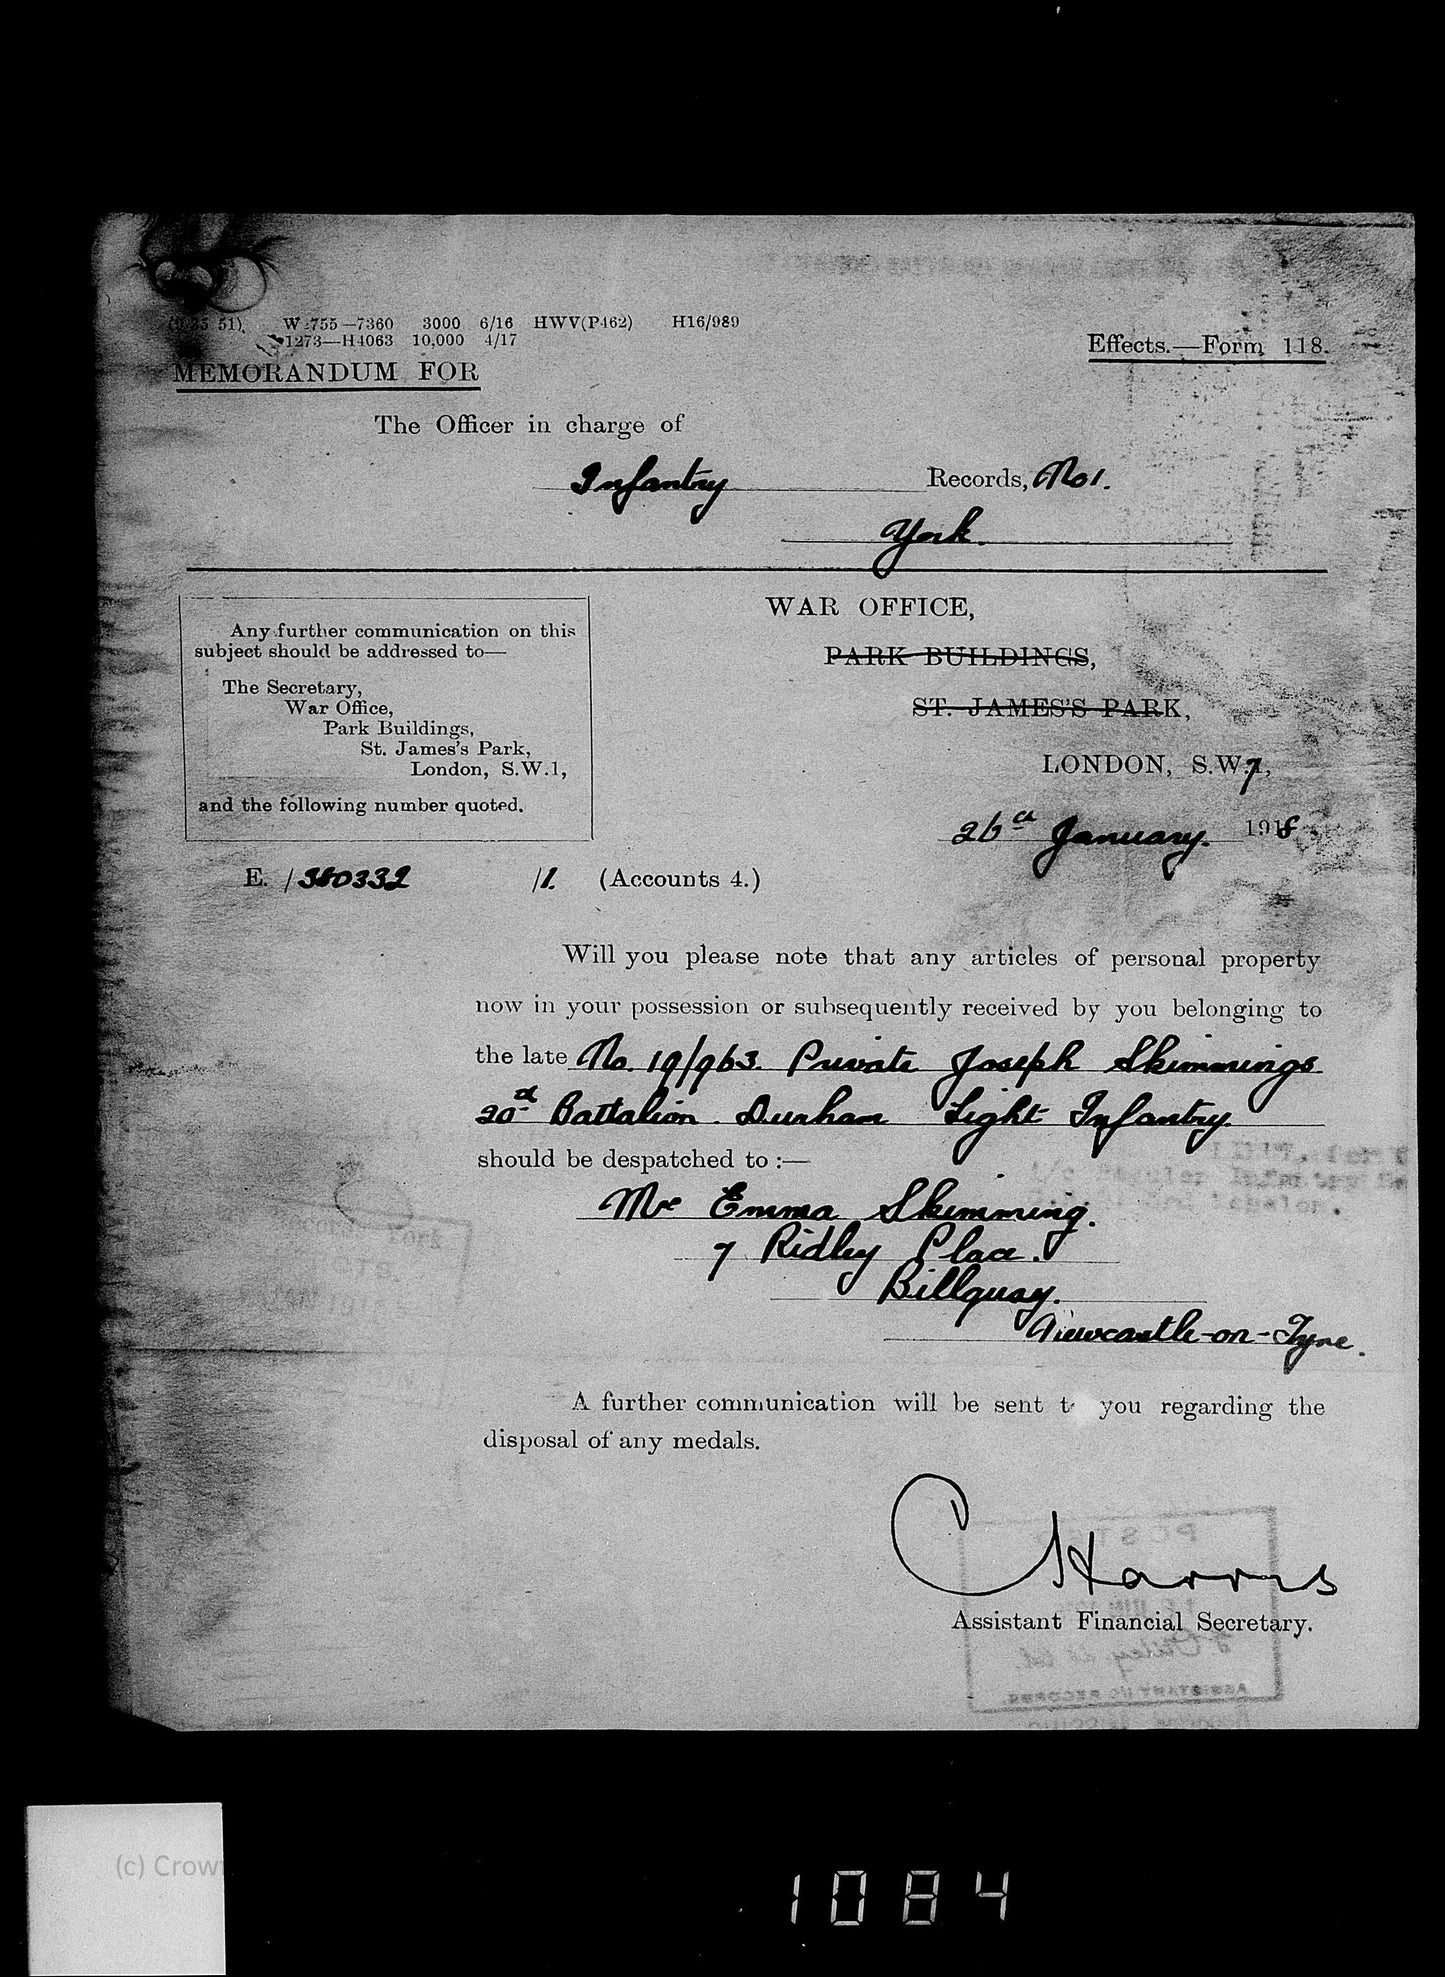 51). W 755—7360 3000 6/16 HWV(P462) H16/989
1273—H4063 10,000 4/17
Effects.—Form 118.
MEMORANDUM FOR
The Officer in charge of
Infantry Records, No 1.
York.
Any further communication on this
subject should be addressed to—
The Secretary,
War Office,
Park Buildings,
St. James's Park,
London, S.W.1,
and the following number quoted.
WAR OFFICE,
PARK BUILDINGS,
ST. JAMES'S PARK,
LONDON, S.W.7,
26th January. 1918
E. /380332 /1. (Accounts 4.)
Will you please note that any articles of personal property
now in your possession or subsequently received by you belonging to
the late No. 19/963. Private Joseph Skimmings
20th Battalion. Durham Light Infantry.
should be despatched to :—
Mrs Emma Skimming.
7 Ridley Place.
Billquay.
Newcastle-on-Tyne.
A further communication will be sent you regarding the
disposal of any medals.
C Harris
Assistant Financial Secretary.
POSTED
ASSISTANT I/C RECORDS.
(c) Crown
1084